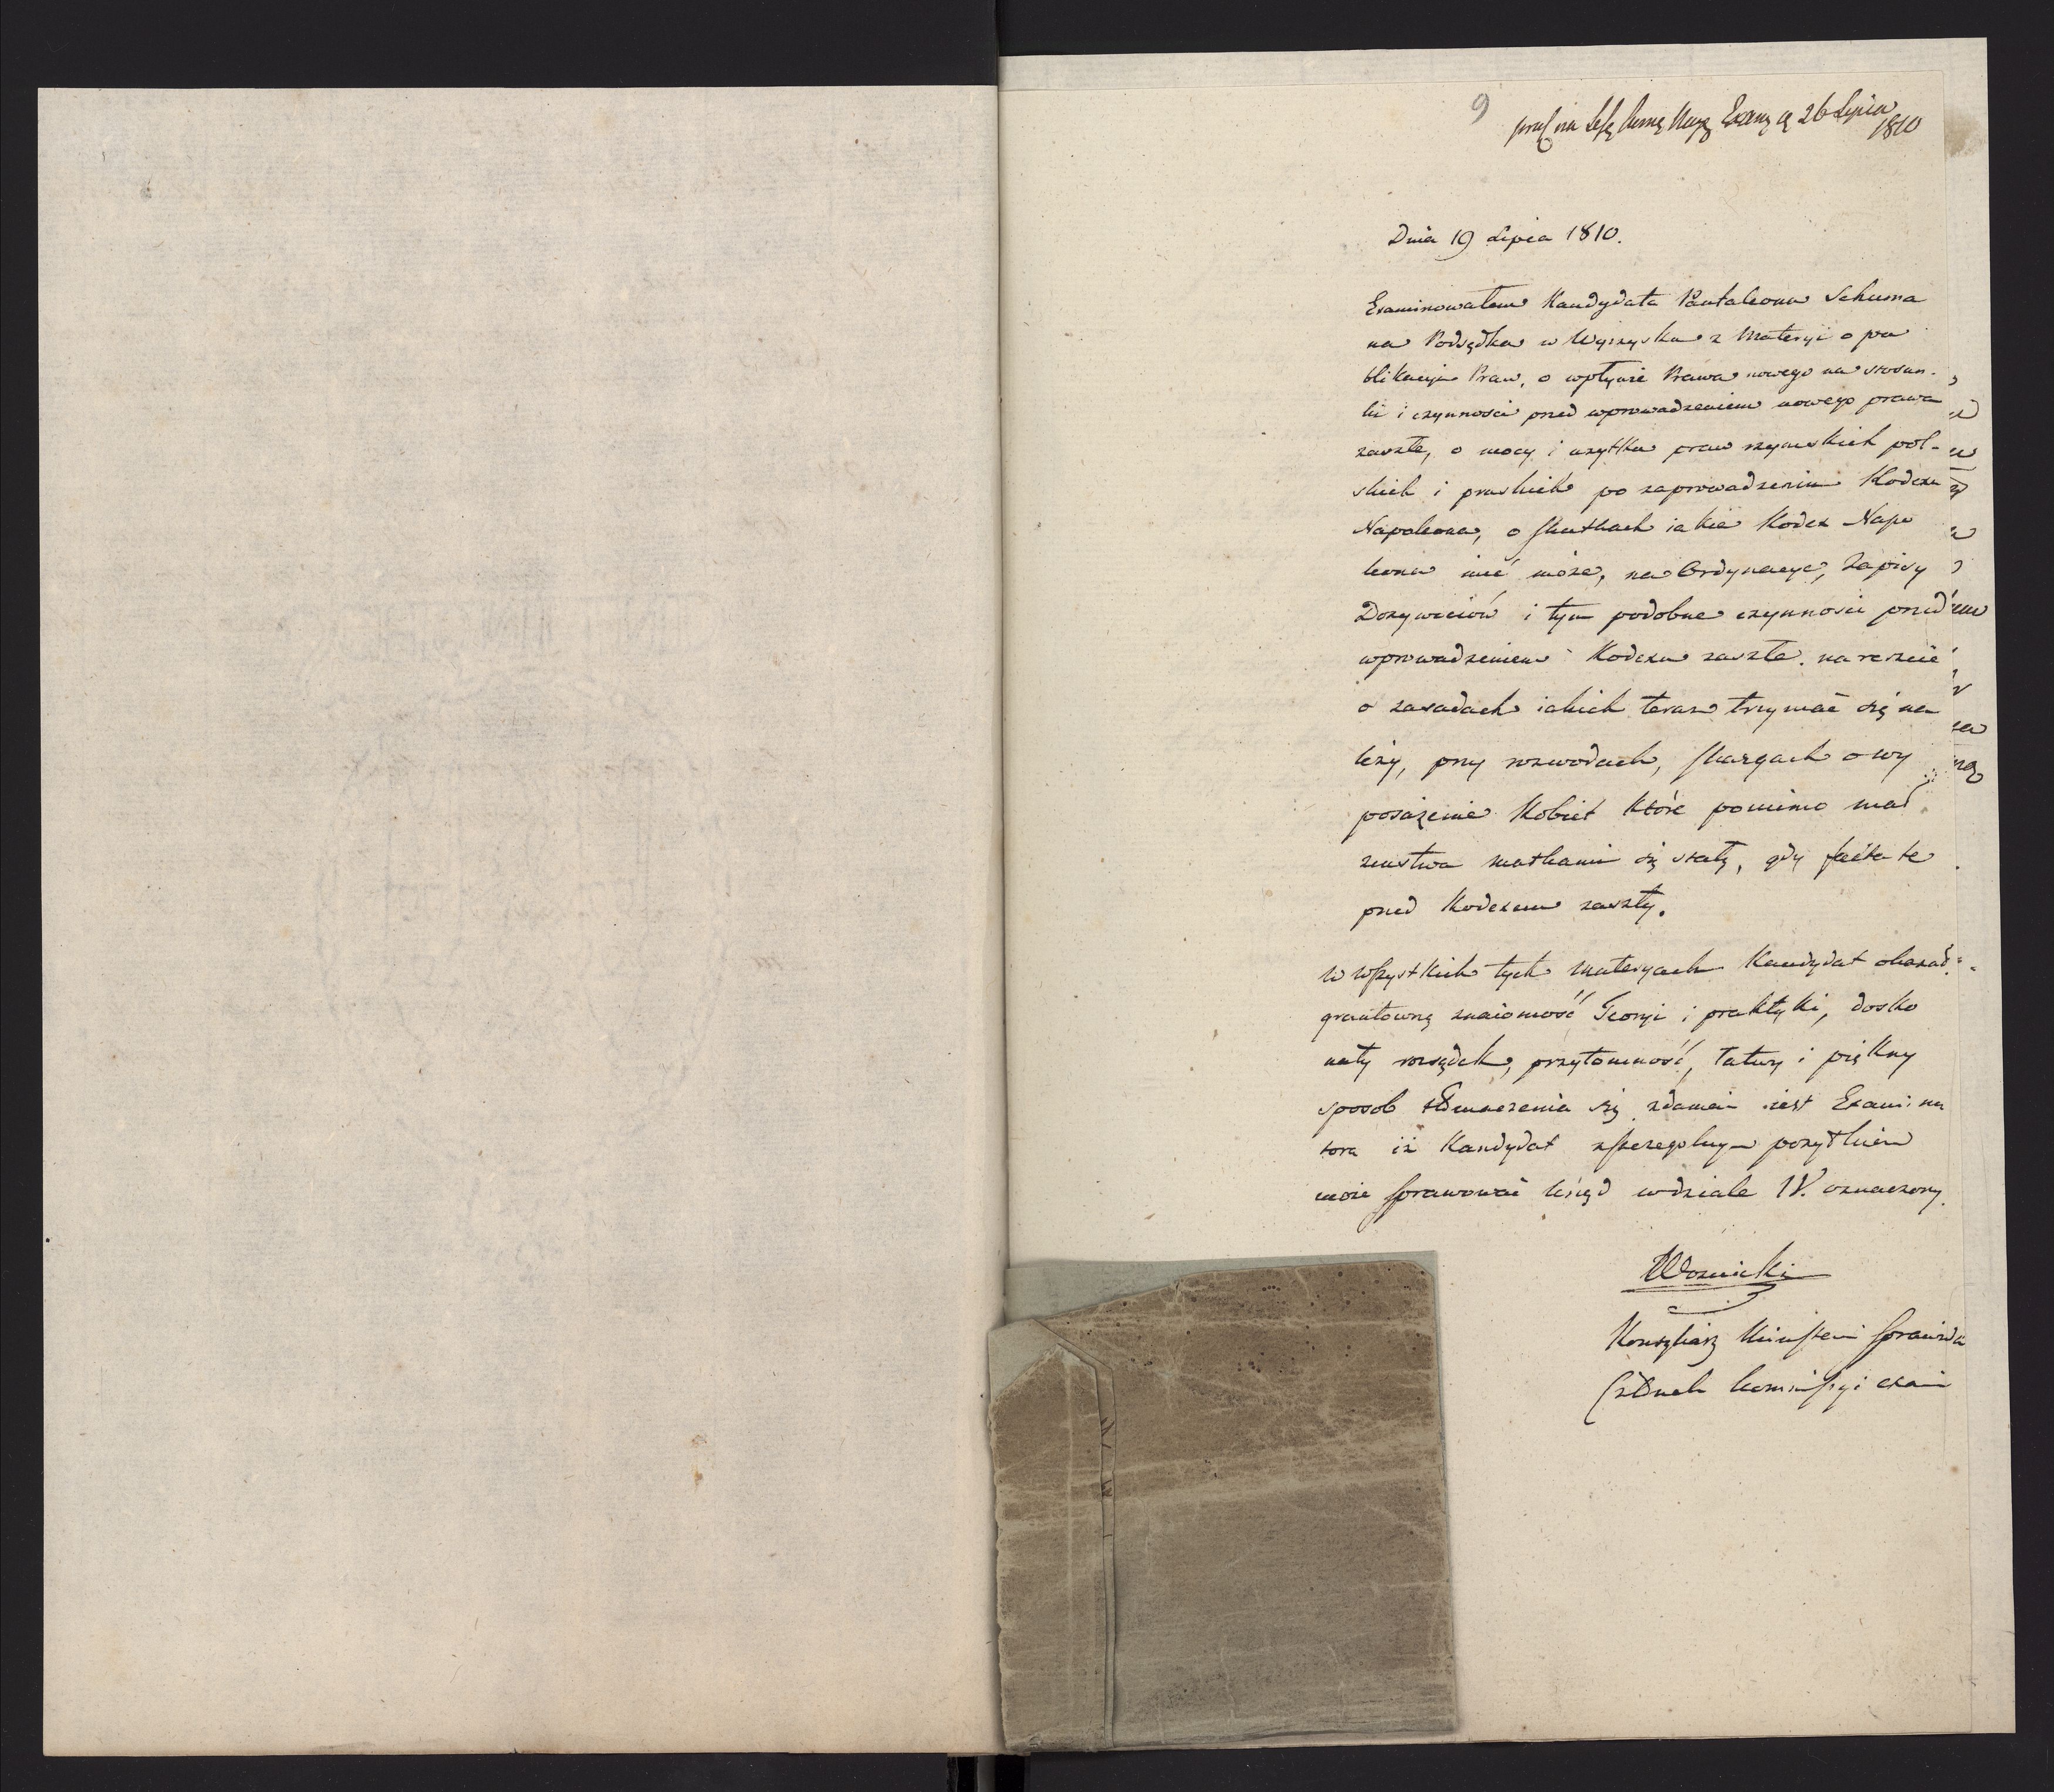 9
26 Lipca
1810
Dnia 19 Lipca 1810.
Examinowałem Kandydata Pantaleona Schuma
na Podsędka w Wyrzysku z Materyi o pu
blikacyi Praw, o wpływie Prawa nowego na stosun-
ki i czynności przed wprowadzeniem nowego prawa
zaszłe, o mocy i użytku praw rzymskich pol-
skich i pruskich po zaprowadzeniu Kodexu
Napoleona, o skutkach iakie Kodex Napo
leona mieć może, na Ordynacye, Zapisy
Dożywociów i tym podobne czynności przed
wprowadzeniem Kodexu zaszłe. na reszcie
o zasadach iakich teraz trzymać się na
leży, przy rozwodach, skargach o wy
posażenie Kobiet które pomimo mał
zeństwa matkami się stały, gdy facta te
przed Kodexem zaszły.
W wszystkich tych materyach Kandydat okazał
gruntowną znaiomość Teoryi i praktyki, dosko
nały rozsądek, przytomność, łatwy i piękny
sposob tłumaczenia się zdaniem iest Examina
tora iż Kandydat z szczegolnym pożytkiem
może sprawować Urząd w dziale IV. oznaczony.
Woznicki
Konsyliarz Ministerii Sprawied
Członek kommissyi exam